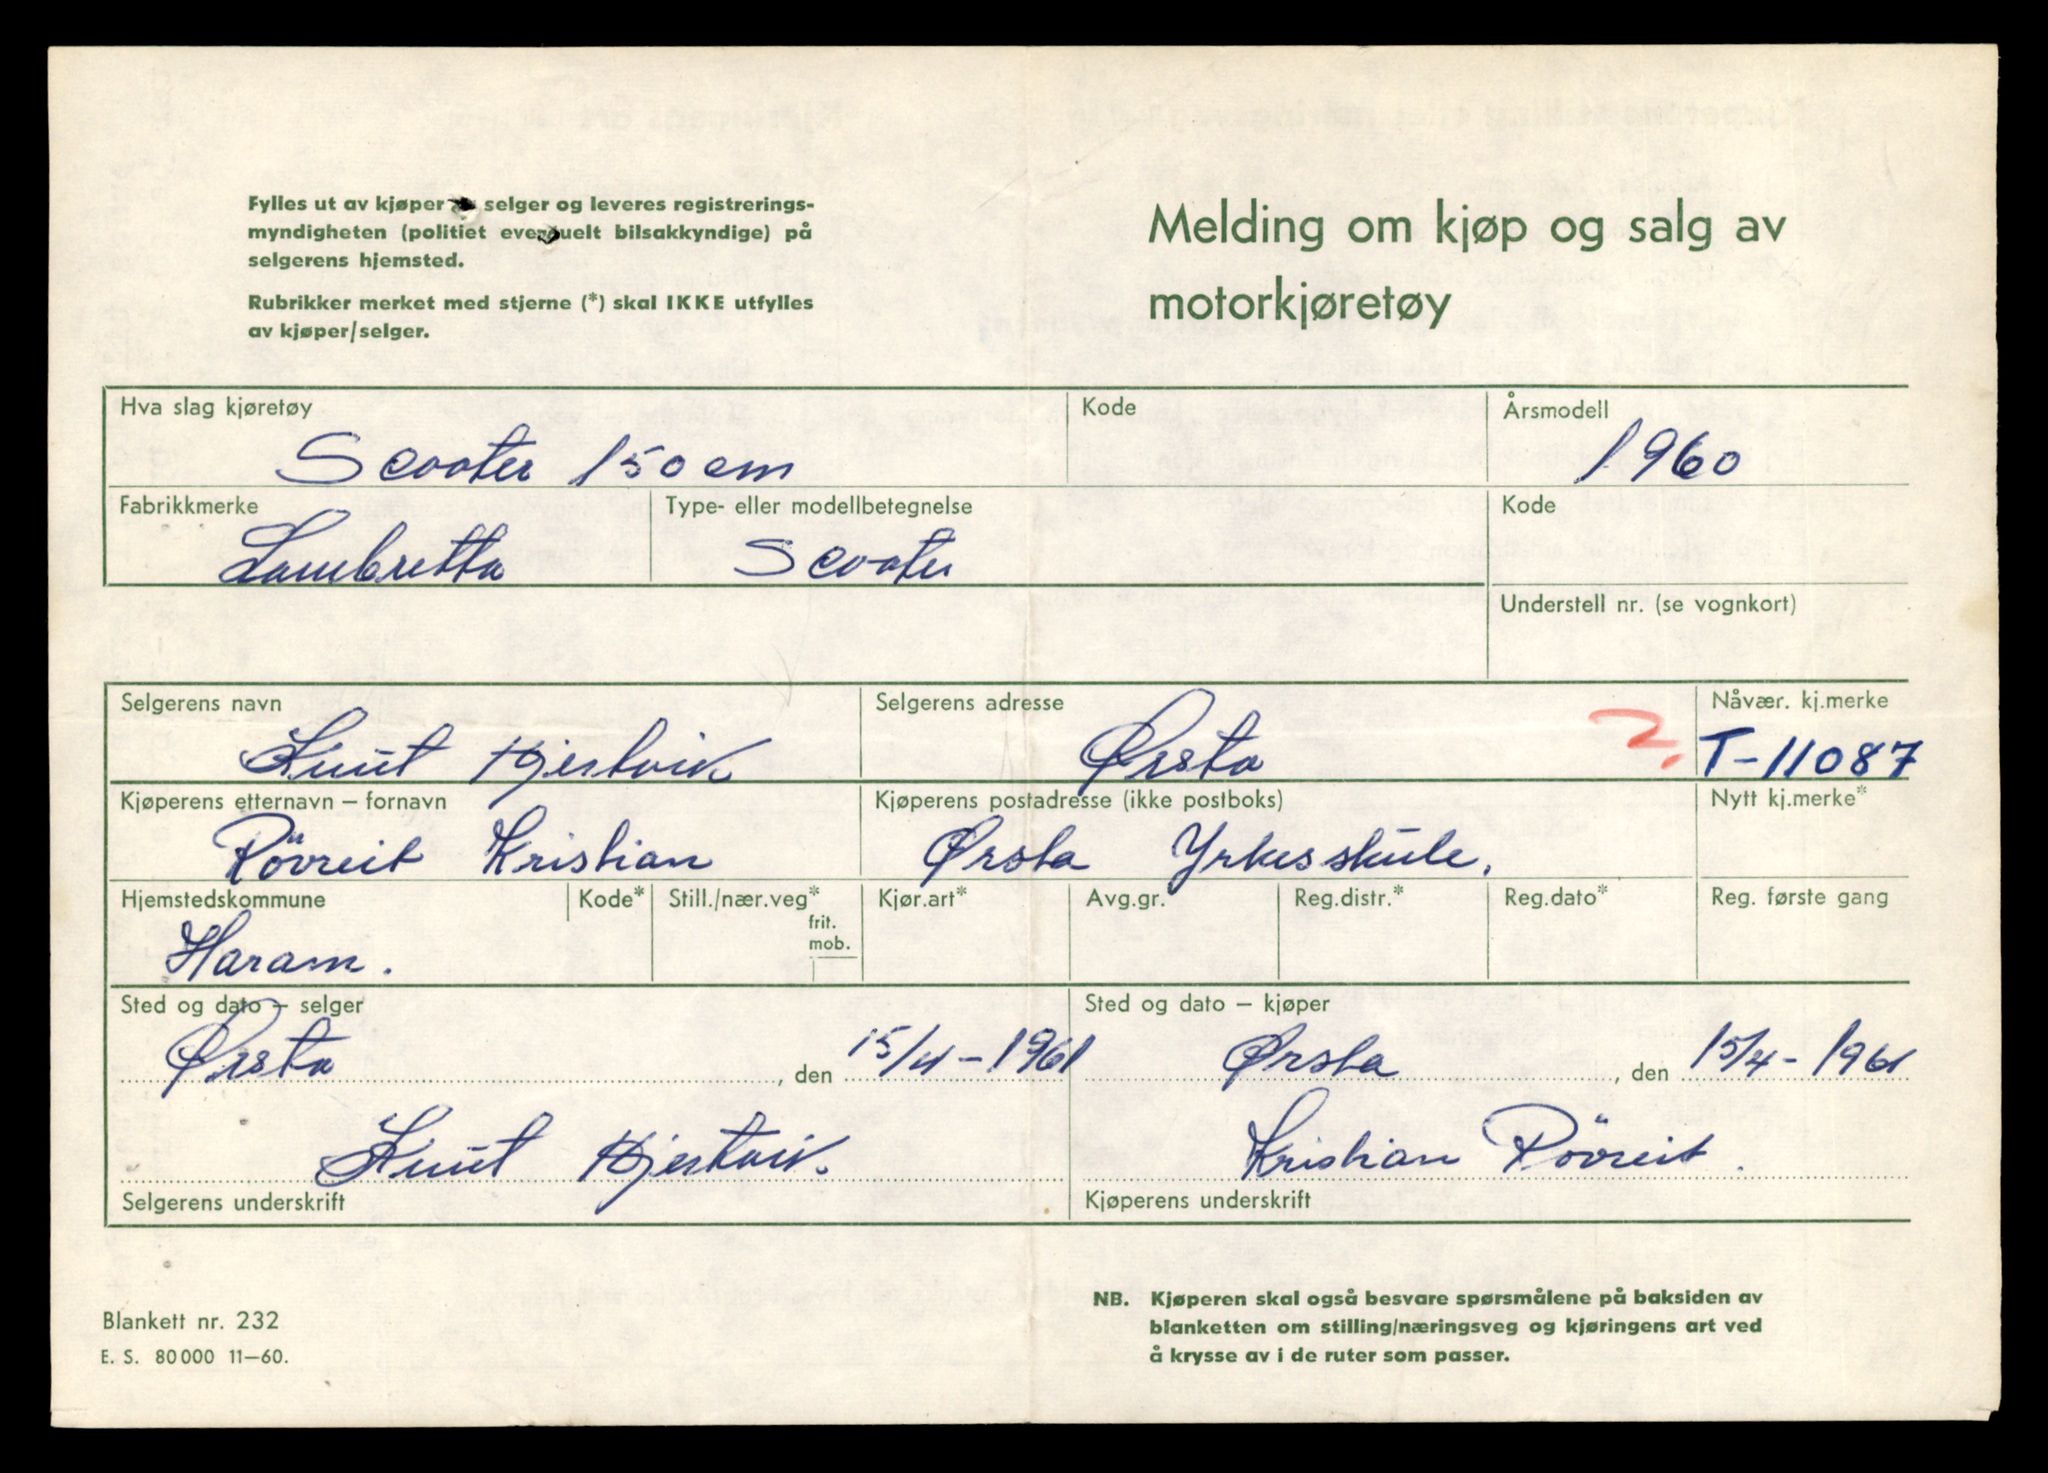 Fylles ut av kjøper selger og leveres registrerings-
myndigheten (politiet eventuelt bilsakkyndige) på
selgerens hjemsted.
Rubrikker merket med stjerne (*) skal IKKE utfylles
av kjøper/selger.
Melding om kjøp og salg av
motorkjøretøy
Hva slag kjøretøy Kode Årsmodell
Scooter 150 cm 1960
Fabrikkmerke Type- eller modellbetegnelse Kode
Lambretta Scooter
Understell nr. (se vognkort)
Selgerens navn Selgerens adresse Nåvær. kj.merke
Knut Hjertvik Ørsta 2. T-11087
Kjøperens etternavn – fornavn Kjøperens postadresse (ikke postboks) Nytt kj.merke*
Rövreit Kristian Ørsta Yrkesskule.
Hjemstedskommune Kode* Still./nær.veg* Kjør.art* Avg.gr. Reg.distr.* Reg.dato* Reg. første gang
frit.
mob.
Haram.
Sted og dato – selger Sted og dato – kjøper
Ørsta , den 15/4-1961 Ørsta , den 15/4-1961
Knut Hjertvik. Kristian Rövreit.
Selgerens underskrift Kjøperens underskrift
Blankett nr. 232
E. S. 80000 11–60.
NB. Kjøperen skal også besvare spørsmålene på baksiden av
blanketten om stilling/næringsveg og kjøringens art ved
å krysse av i de ruter som passer.